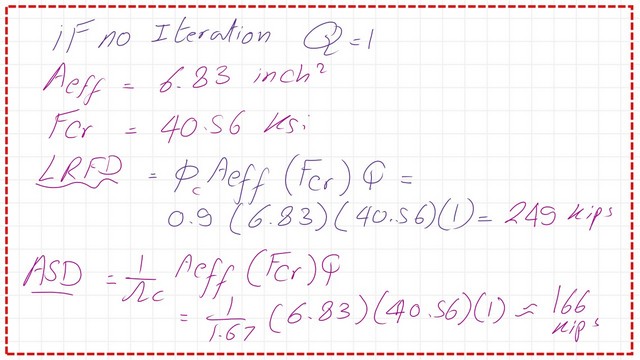 if no Iteration Q=1
Aeff = 6.83 inch²
Fcr = 40.56 Ksi
LRFD = ϕc Aeff (Fcr) Q =
0.9 (6.83)(40.56)(1) = 249 kips
ASD = 1/Ωc Aeff (Fcr) Q
= 1/1.67 (6.83)(40.56)(1) ≈ 166 kips